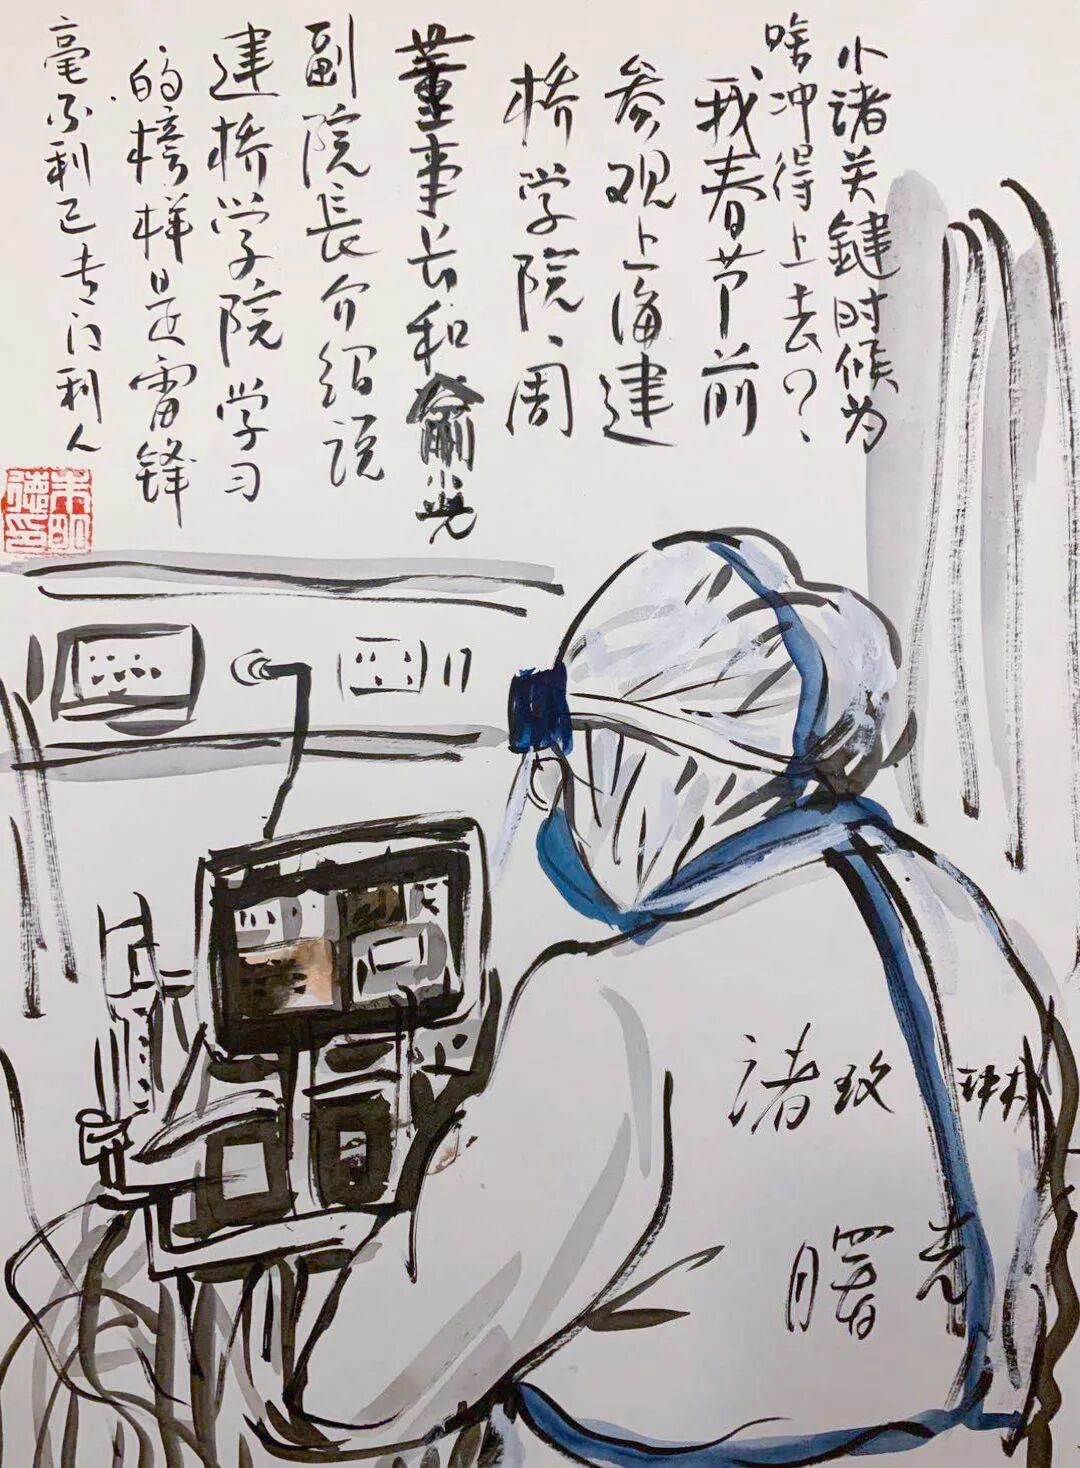 小诸关鍵时候为
啥冲得上去？
我春节前
参观上海建
桥学院、周
董事长和俞光
副院長介绍说
建桥学院学习
的榜样是雷锋
毫不利己专门利人
朱明
德印
诸玫琳
曙光